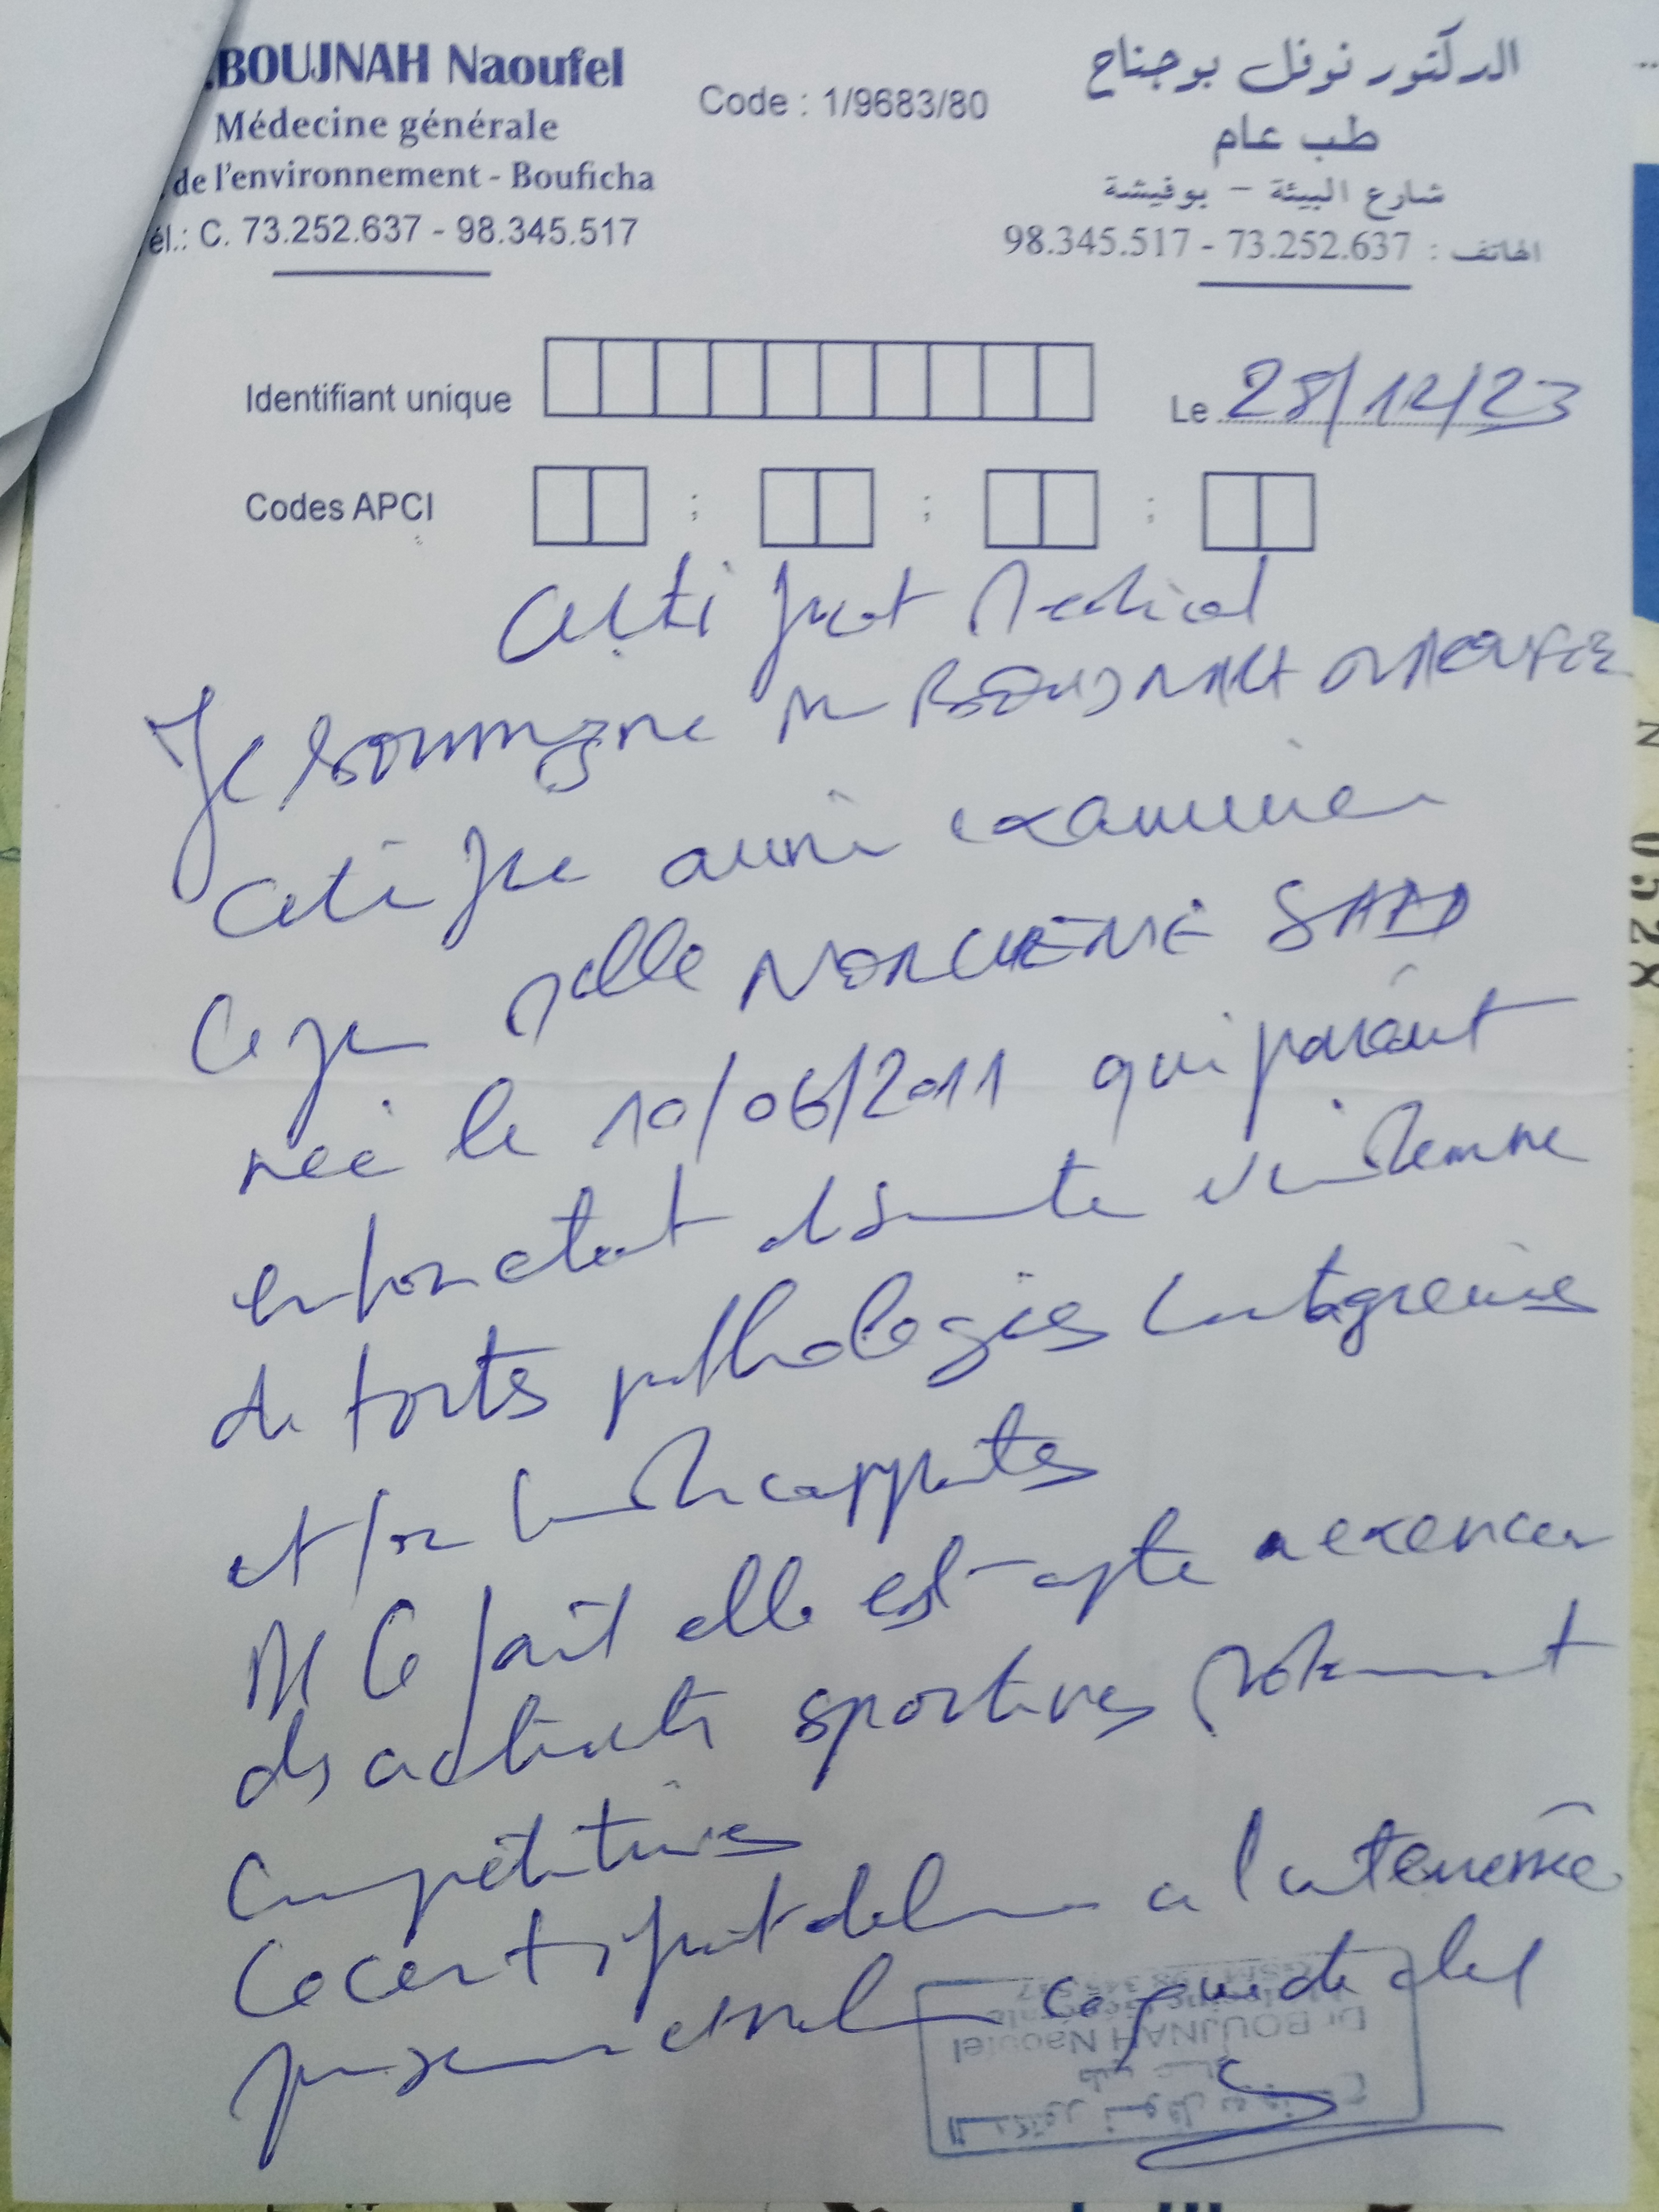 .BOUJNAH Naoufel
Médecine générale
de l'environnement - Bouficha
él.: C. 73.252.637 - 98.345.517
Code : 1/9683/80
الدكتور نوفل بوجناح
طب عام
شارع البيئة - بوفيشة
الهاتف : 73.252.637 - 98.345.517
Identifiant unique
Le 28/12/23
Codes APCI ; ; ;
Certificat Medical
Je soussigne BOUJNAH NAOUFEL
certifie avoir examiner
ce jour Melle NORCHENE SAAD
née le 10/06/2011 qui parait
en bon etat de sante
de toutes pathologies contagieuses
et/ou handicappantes
De ce fait elle est apte a exercer
des activités sportives notamment
compétitives
Ce certificat delivre a l'interessée
Dr BOUJNAH Naoufel
Médecine Générale
0528